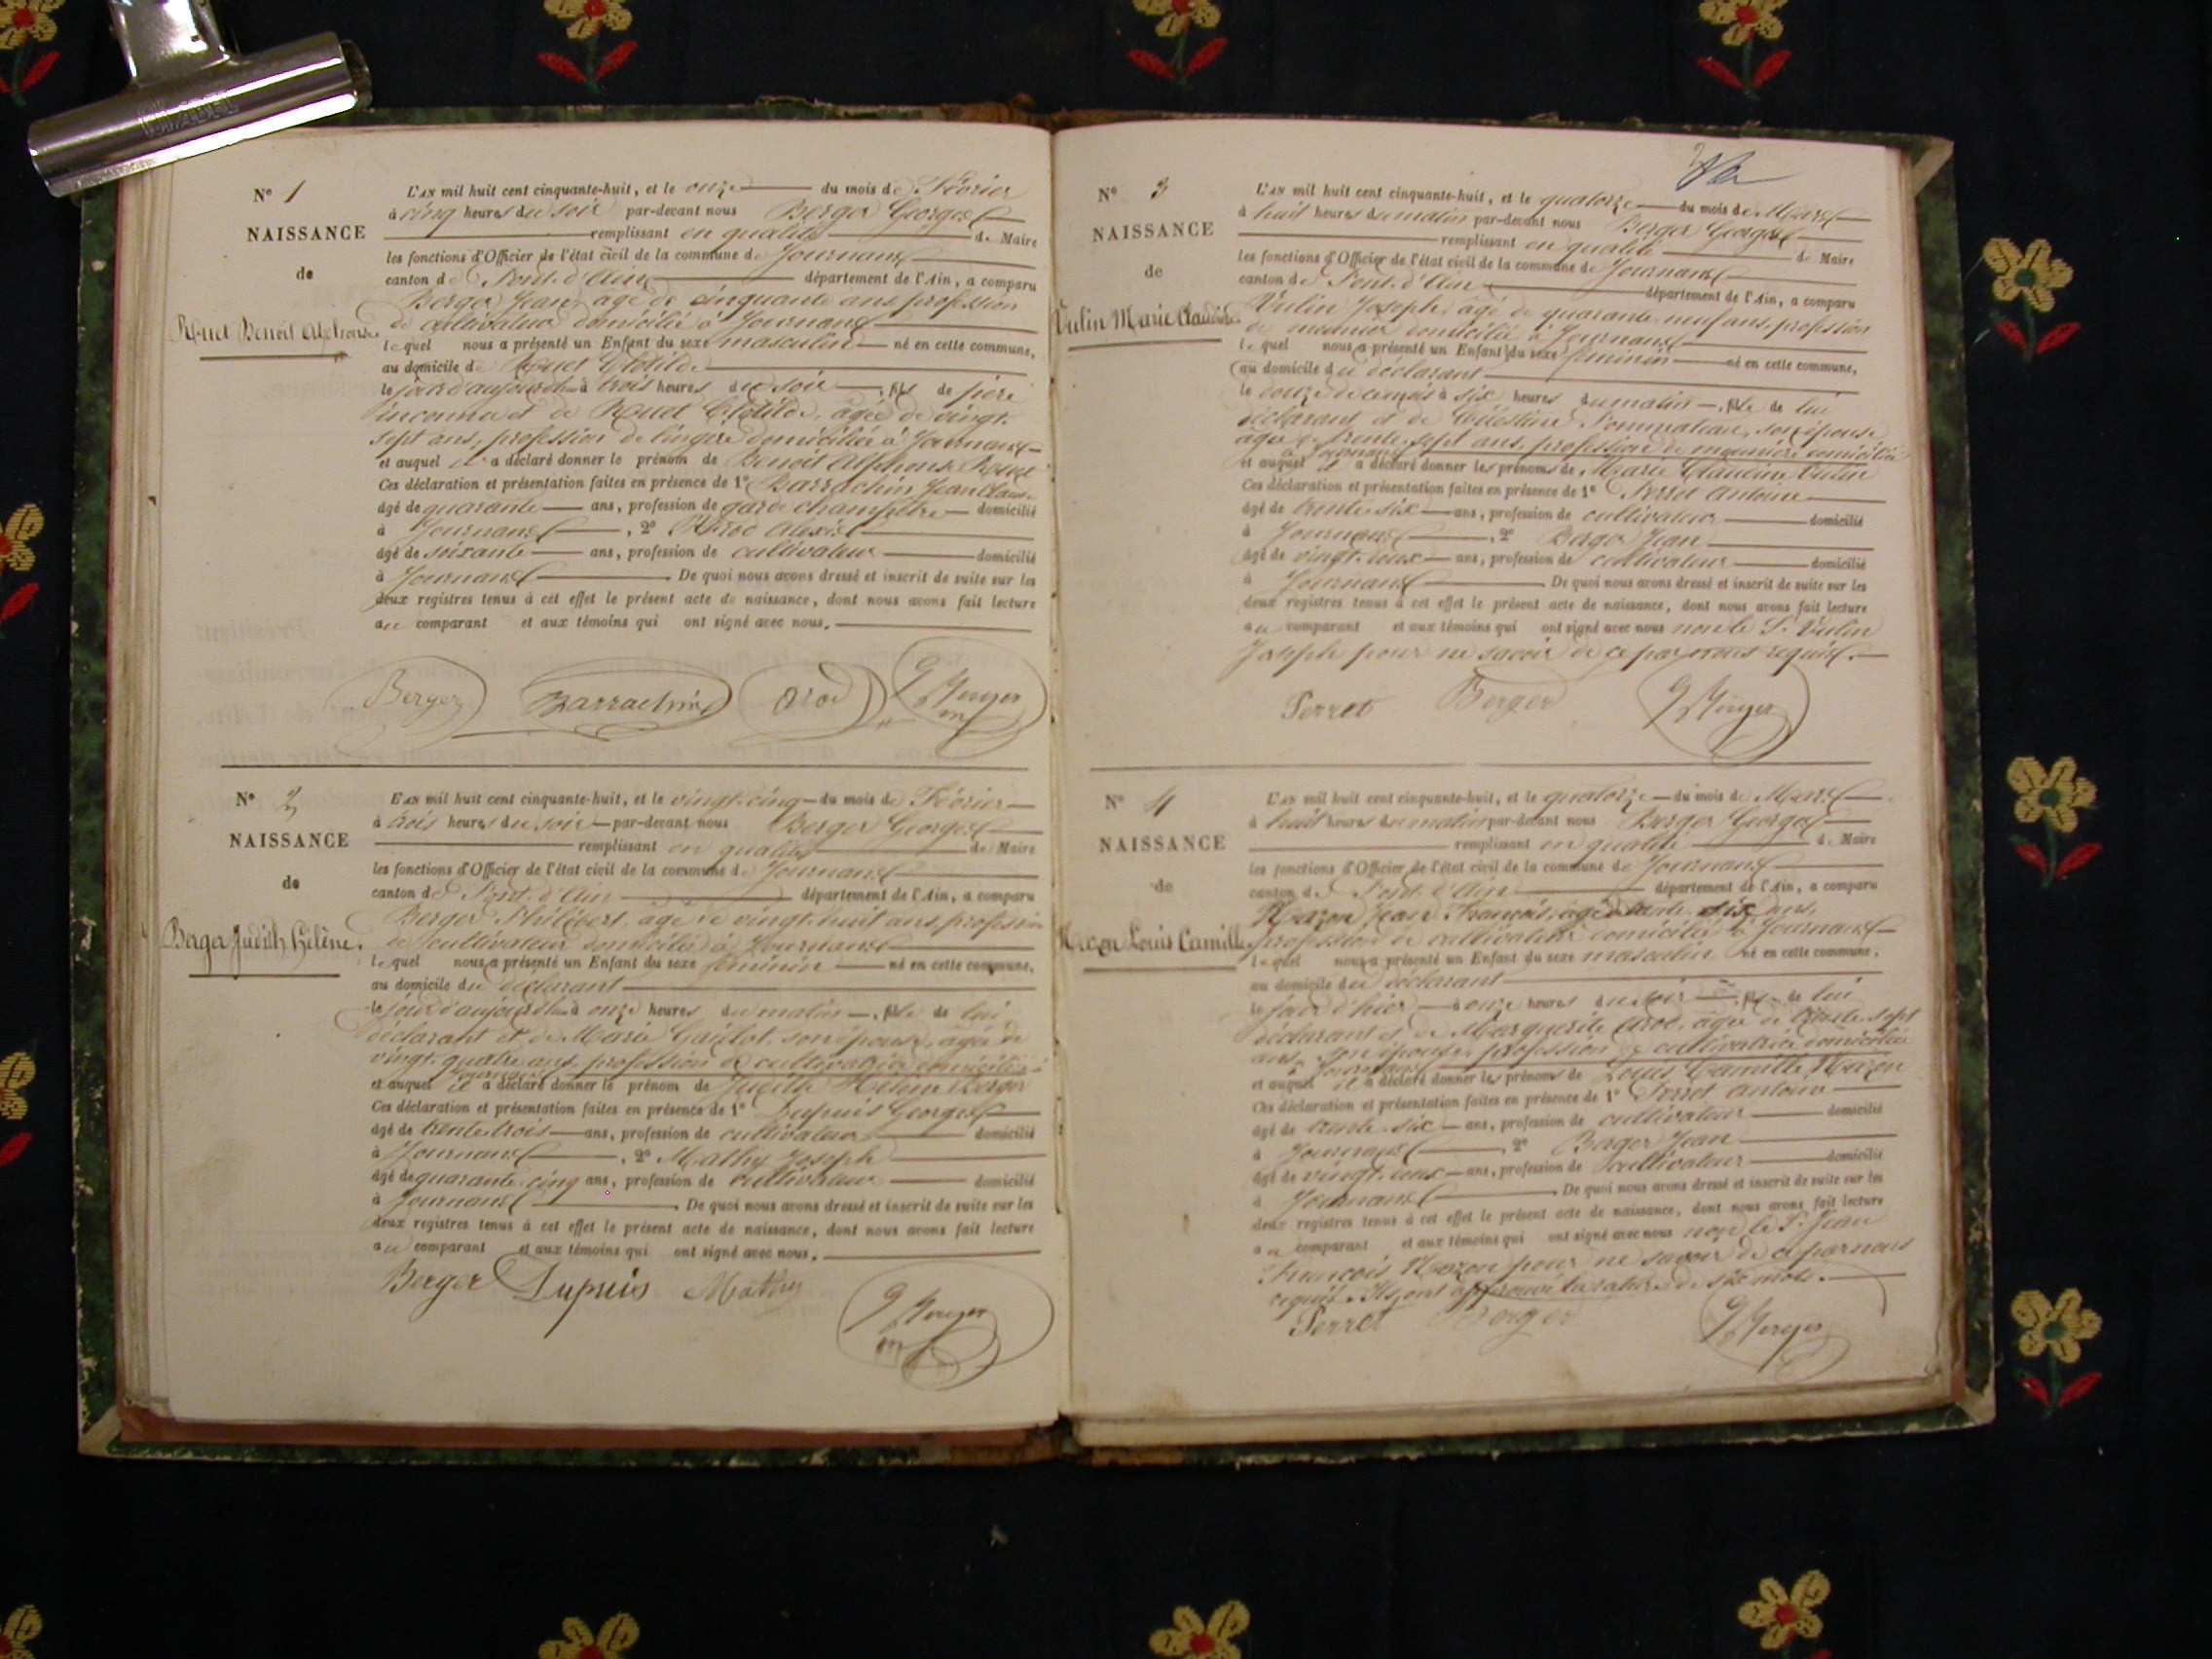 N° 1
NAISSANCE
de
Rouet Benoît Alphonse
L'an mil huit cent cinquante-huit, et le onze du mois de Février
à cinq heures du soir par-devant nous Berger Georges
remplissant en qualité de Maire
les fonctions d'Officier de l'état civil de la commune de Journans
canton de Pont-d'Ain département de l'Ain, a comparu
Berger Jean âgé de cinquante ans profession
de cultivateur domicilié à Journans
lequel nous a présenté un Enfant du sexe masculin né en cette commune,
au domicile de Rouet Clotilde
le jour d'aujourd'hui à trois heures du soir, fils de père
inconnu et de Rouet Clotilde, âgée de vingt-
sept ans, profession de lingère domiciliée à Journans
et auquel il a déclaré donner le prénom de Benoît Alphonse Rouet
Ces déclaration et présentation faites en présence de 1° Barrachin Jean Claude
âgé de quarante ans, profession de garde champêtre domicilié
à Journans, 2° Arod Alexis
âgé de soixante ans, profession de cultivateur domicilié
à Journans De quoi nous avons dressé et inscrit de suite sur les
deux registres tenus à cet effet le présent acte de naissance, dont nous avons fait lecture
au comparant et aux témoins qui ont signé avec nous.
Berger Barrachin Arod G Berger
N° 2
NAISSANCE
de
Berger Judith Hélène.
L'an mil huit cent cinquante-huit, et le vingt-cinq du mois de Février
à trois heures du soir par-devant nous Berger Georges
remplissant en qualité de Maire
les fonctions d'Officier de l'état civil de la commune de Journans
canton de Pont-d'Ain département de l'Ain, a comparu
Berger Philibert, âgé de vingt-huit ans, profession
de cultivateur domicilié à Journans
lequel nous a présenté un Enfant du sexe féminin né en cette commune,
au domicile du déclarant
le jour d'aujourd'hui à onze heures du matin, fille de lui
déclarant et de Marie son épouse, âgée de
vingt-quatre ans, profession de cultivatrice domiciliée
à Journans
et auquel il a déclaré donner le prénom de Judith Hélène Berger
Ces déclaration et présentation faites en présence de 1° Dupuis Georges
âgé de trente-trois ans, profession de cultivateur domicilié
à Journans, 2° Mathy Joseph
âgé de quarante-cinq ans, profession de cultivateur domicilié
à Journans De quoi nous avons dressé et inscrit de suite sur les
deux registres tenus à cet effet le présent acte de naissance, dont nous avons fait lecture
au comparant et aux témoins qui ont signé avec nous.
Berger Dupuis Mathy G Berger
N° 3
NAISSANCE
de
Vulin Marie Claudine
L'an mil huit cent cinquante-huit, et le quatorze du mois de Mars
à huit heures du matin par-devant nous Berger Georges
remplissant en qualité de Maire
les fonctions d'Officier de l'état civil de la commune de Journans
canton de Pont-d'Ain département de l'Ain, a comparu
Vulin Joseph, âgé de quarante-neuf ans, profession
de meunier domicilié à Journans
lequel nous a présenté un Enfant du sexe féminin né en cette commune,
au domicile du déclarant
le douze de ce mois à six heures du matin, fille de lui
déclarant et de Célestine Pommateau, son épouse
âgée de trente-sept ans, profession de meunière domiciliée
à Journans
et auquel il a déclaré donner les prénoms de Marie Claudine Vulin
Ces déclaration et présentation faites en présence de 1° Perret Antoine
âgé de trente-six ans, profession de cultivateur domicilié
à Journans, 2° Berger Jean
âgé de vingt-deux ans, profession de cultivateur domicilié
à Journans De quoi nous avons dressé et inscrit de suite sur les
deux registres tenus à cet effet le présent acte de naissance, dont nous avons fait lecture
au comparant et aux témoins qui ont signé avec nous non le S. Vulin
Joseph pour ne savoir de ce par nous requis.
Perret Berger G Berger
N° 4
NAISSANCE
de
Mazon Louis Camille
L'an mil huit cent cinquante-huit, et le quatorze du mois de Mars
à huit heures du matin par-devant nous Berger Georges
remplissant en qualité de Maire
les fonctions d'Officier de l'état civil de la commune de Journans
canton de Pont-d'Ain département de l'Ain, a comparu
Mazon Jean François, âgé de trente-six ans,
profession de cultivateur domicilié à Journans
lequel nous a présenté un Enfant du sexe masculin né en cette commune,
au domicile du déclarant
le jour d'hier à onze heures du soir, fils de lui
déclarant et de Marguerite Arod, âgée de trente-sept
ans, son épouse, profession de cultivatrice domiciliée
à Journans
et auquel il a déclaré donner les prénoms de Louis Camille Mazon
Ces déclaration et présentation faites en présence de 1° Perret Antoine
âgé de trente-six ans, profession de cultivateur domicilié
à Journans, 2° Berger Jean
âgé de vingt-deux ans, profession de cultivateur domicilié
à Journans De quoi nous avons dressé et inscrit de suite sur les
deux registres tenus à cet effet le présent acte de naissance, dont nous avons fait lecture
au comparant et aux témoins qui ont signé avec nous non le S. Jean
François Mazon pour ne savoir de ce par nous
requis. Ils ont approuvé la rature de six mots.
Perret Berger G Berger